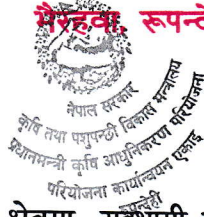 भैरहवा, रूपन्दे
नेपाल सरकार
कृषि तथा पशुपन्छी विकास मन्त्रालय
प्रधानमन्त्री कृषि आधुनिकीकरण परियोजना
परियोजना कार्यान्वयन एकाई
रूपन्देही